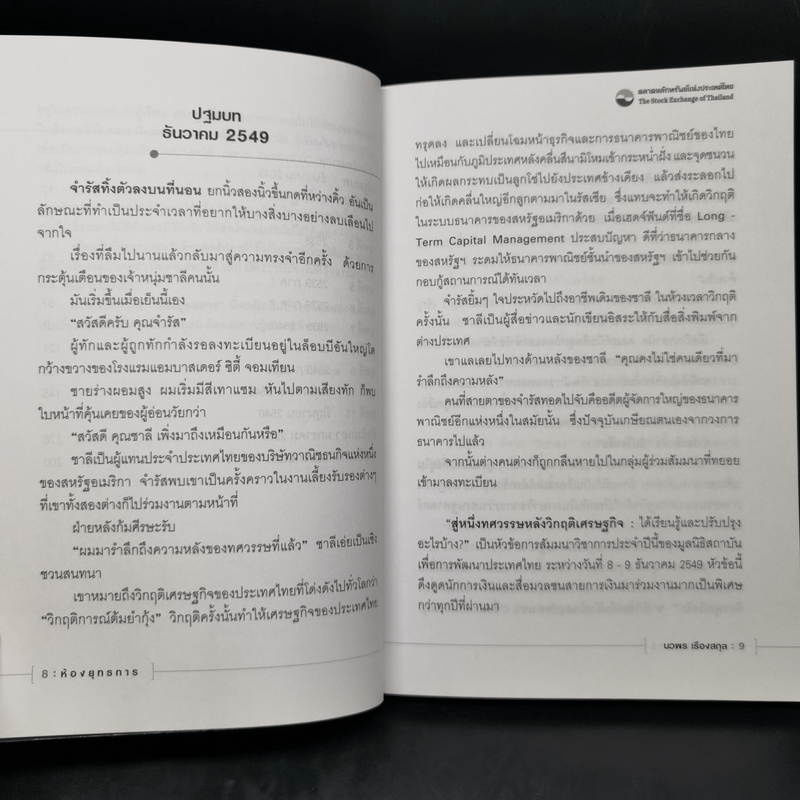 ปฐมบท
ธันวาคม 2549
จำรัสทิ้งตัวลงบนที่นอน ยกนิ้วสองนิ้วขึ้นกดที่หว่างคิ้ว อันเป็น
ลักษณะที่ทำเป็นประจำเวลาที่อยากให้บางสิ่งบางอย่างลบเลือนไป
จากใจ
เรื่องที่ลืมไปนานแล้วกลับมาสู่ความทรงจำอีกครั้ง ด้วยการ
กระตุ้นเตือนของเจ้าหนุ่มชาลีคนนั้น
มันเริ่มขึ้นเมื่อเย็นนี้เอง
“สวัสดีครับ คุณจำรัส”
ผู้ทักและผู้ถูกทักกำลังรอลงทะเบียนอยู่ในล็อบบี้อันใหญ่โต
กว้างขวางของโรงแรมแอมบาสเดอร์ ซิตี้ จอมเทียน
ชายร่างผอมสูง ผมเริ่มมีสีเทาแซม หันไปตามเสียงทัก ก็พบ
ใบหน้าที่คุ้นเคยของผู้อ่อนวัยกว่า
“สวัสดี คุณชาลี เพิ่งมาถึงเหมือนกันหรือ”
ชาลีเป็นผู้แทนประจำประเทศไทยของบริษัทวาณิชธนกิจแห่งหนึ่ง
ของสหรัฐอเมริกา จำรัสพบเขาเป็นครั้งคราวในงานเลี้ยงรับรองต่างๆ
ที่เขาทั้งสองต่างก็ไปร่วมงานตามหน้าที่
ฝ่ายหลังก้มศีรษะรับ
“ผมมารำลึกถึงความหลังของทศวรรษที่แล้ว” ชาลีเอ่ยเป็นเชิง
ชวนสนทนา
เขาหมายถึงวิกฤติเศรษฐกิจของประเทศไทยที่โด่งดังไปทั่วโลกว่า
“วิกฤติการณ์ต้มยำกุ้ง” วิกฤติครั้งนั้นทำให้เศรษฐกิจของประเทศไทย
8 : ห้องยุทธการ
ตลาดหลักทรัพย์แห่งประเทศไทย
The Stock Exchange of Thailand
ทรุดลง และเปลี่ยนโฉมหน้าธุรกิจและการธนาคารพาณิชย์ของไทย
ไปเหมือนกับภูมิประเทศหลังคลื่นสึนามิโหมเข้ากระหน่ำฝั่ง และจุดชนวน
ให้เกิดผลกระทบเป็นลูกโซ่ไปยังประเทศข้างเคียง แล้วส่งระลอกไป
ก่อให้เกิดคลื่นใหญ่อีกลูกตามมาในรัสเซีย ซึ่งแทบจะทำให้เกิดวิกฤติ
ในระบบธนาคารของสหรัฐอเมริกาด้วย เมื่อเฮดจ์ฟันด์ที่ชื่อ Long -
Term Capital Management ประสบปัญหา ดีที่ว่าธนาคารกลาง
ของสหรัฐฯ ระดมให้ธนาคารพาณิชย์ชั้นนำของสหรัฐฯ เข้าไปช่วยกัน
กอบกู้สถานการณ์ได้ทันเวลา
จำรัสยิ้มๆ ใจประหวัดไปถึงอาชีพเดิมของชาลี ในห้วงเวลาวิกฤติ
ครั้งนั้น ชาลีเป็นผู้สื่อข่าวและนักเขียนอิสระให้กับสื่อสิ่งพิมพ์จาก
ต่างประเทศ
เขาแลเลยไปทางด้านหลังของชาลี “คุณคงไม่ใช่คนเดียวที่มา
รำลึกถึงความหลัง”
คนที่สายตาของจำรัสทอดไปจับคืออดีตผู้จัดการใหญ่ของธนาคาร
พาณิชย์อีกแห่งหนึ่งในสมัยนั้น ซึ่งปัจจุบันเกษียณตนเองจากวงการ
ธนาคารไปแล้ว
จากนั้นต่างคนต่างก็ถูกกลืนหายไปในกลุ่มผู้ร่วมสัมมนาที่ทยอย
เข้ามาลงทะเบียน
“สู่หนึ่งทศวรรษหลังวิกฤติเศรษฐกิจ : ได้เรียนรู้และปรับปรุง
อะไรบ้าง?” เป็นหัวข้อการสัมมนาวิชาการประจำปีนี้ของมูลนิธิสถาบัน
เพื่อการพัฒนาประเทศไทย ระหว่างวันที่ 8 - 9 ธันวาคม 2549 หัวข้อนี้
ดึงดูดนักการเงินและสื่อมวลชนสายการเงินมาร่วมงานมากเป็นพิเศษ
กว่าทุกปีที่ผ่านมา
นวพร เรืองสกุล : 9